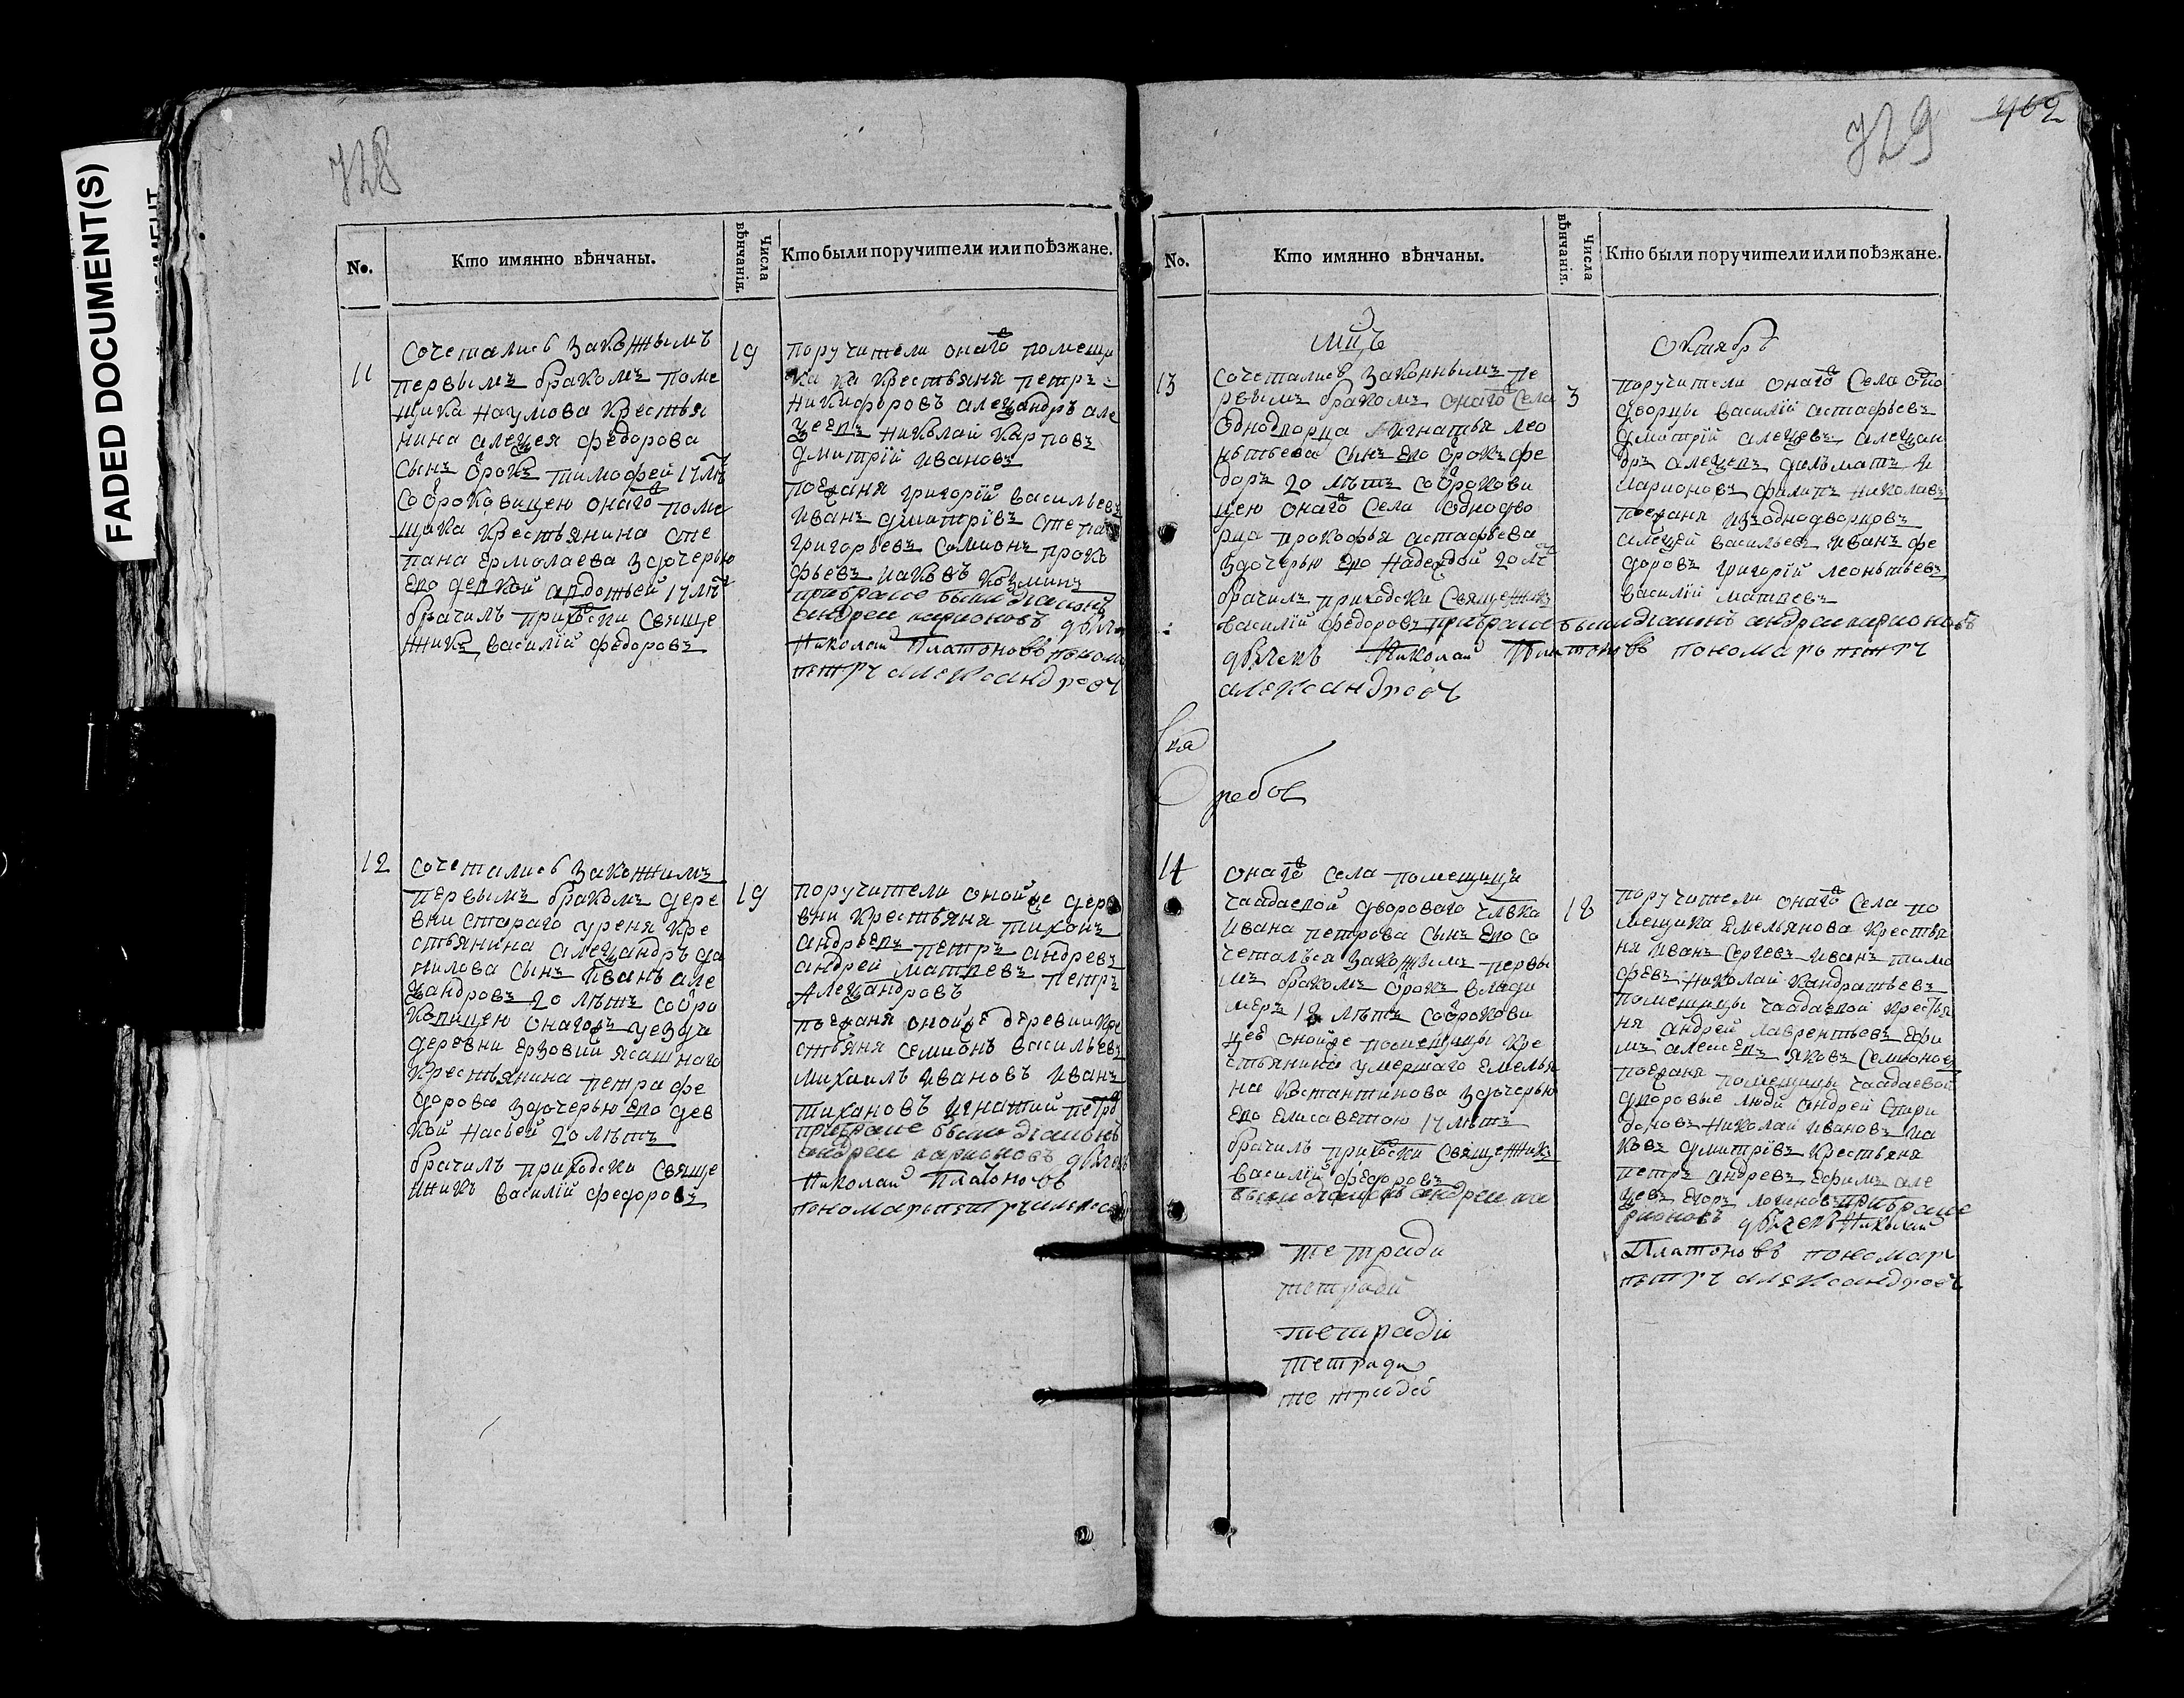 FADED DOCUMENT(S)
728
No.
Кто имянно вѣнчаны.
Числа вѣнчанія.
Кто были поручители или поѣзжане.
11
сочетались законнымъ
первымъ бракомъ поме
щика наумова крестья
нина алеѯея федорова
сынъ отрокъ тимофей 17 лѣт
со отроковицею онаго поме
щика крестьянина сте
пана ермолаева здочерью
ево девкой авдотьей 17 лѣт
брачилъ приходски свяще
нникъ василій федоровъ
19
поручители онаго помещи
ка крестьяня петръ
никифоровъ алеѯандръ але
ѯеевъ николай карповъ
дмитрій ивановъ
поезжаня григорій васильевъ
иванъ дмитрівъ степа
григорьевъ самионъ прокъ
фьевъ иаковъ козминъ
прибраше были диаконъ
андреи ларионовъ дьячек
Николаи Платоновъ поном
петръ александровъ
12
сочетались законнимъ
первымъ бракомъ дере
вни стараго уреня кре
стьянина алеѯандръ да
нилова сынъ иванъ але
ѯандровъ 20 лѣтъ со отро
ковицею онагожъ уезда
деревни ерзовии ясашнаго
крестьянина петра фе
дорова здочерью ево дев
кой насьей 20 лѣтъ
брачилъ приходски свяще
нникъ василій федоровъ
19
поручители онойже дере
вни крестьяня тихонъ
андрѣевъ петръ андревъ
андрей матвевъ петръ
Алеѯандровъ
поезжаня онойже деревни кре
стьяня семионъ васильевъ
михаилъ ивановъ иванъ
тихановъ игнатий петро
прибраше были диаконъ
андреи ларионовъ дьячекъ
Николаи Платоновъ
пономарь петръ алекса
729
402
No.
Кто имянно вѣнчаны.
Числа вѣнчанія.
Кто были поручители или поѣзжане.
мцъ
Октябрь
13
сочетались законнымъ пе
рвымъ бракомъ онаго села
однодворца игнатья лео
нтьева сынъ ево отрокъ фе
доръ 20 лѣтъ со отрокови
цею онаго села однодво
рца прокофья астафьева
здочерью ево надеждой 20 лѣт
брачилъ приходски священикъ
василій федоровъ прибраше были диаконъ андреи ларионовъ
дьячекъ Николаи Платоновъ пономарь петръ
александровъ
3
поручители онаго села одно
дворцы василій астафьевъ
дмитрій алеѯевъ алеѯан
дръ алеѯевъ далматъ и
ларионовъ филипъ николавъ
поезжаня изоднодворцовъ
алеѯей васильевъ иванъ фе
доровъ григорій леонтьевъ
василій матвевъ
ребов
14
онаго села помещицы
чаадаевой двороваго члвка
ивана петрова сынъ ево со
четалъся законнымъ первы
мъ бракомъ отрокъ влади
меръ 18 лѣтъ со отрокови
цею онойже помещицы кре
стьянина умершаго емелья
на костантинова здочерью
ево елисаветою 17 лѣтъ
брачилъ приходски священникъ
василій федоровъ
были диаконъ андреи ла
18
поручители онаго села по
мещика емельянова крестья
ня иванъ сергевъ иванъ тимо
февъ николай кандратьевъ
помещицы чаадаевой крестья
ня андрей лаврентьевъ ефи
мъ алеѯеевъ яковъ семионовъ
поезжаня помещицы чаадаевой
дворовые люди андрей спири
доновъ николай ивановъ иа
ковъ дмитрівъ крестьяня
петръ андревъ ефимъ але
ѯевъ егоръ логиновъ прибраше
рионовъ дьячекъ Николаи
Платоновъ пономарь
петръ александровъ
тетради
тетради
тетради
тетради
тетради